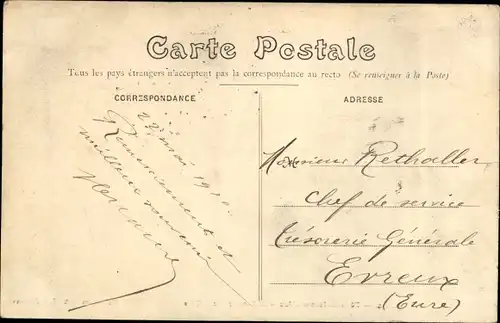 Carte Postale
Tous les pays étrangers n'acceptent pas la correspondance au recto (Se renseigner à la Poste)
CORRESPONDANCE
22 mai 1910
Remerciement et
meilleur souvenir
ADRESSE
Monsieur Rethaller
Chef de service
trésorerie Générale
Evreux
(Eure)